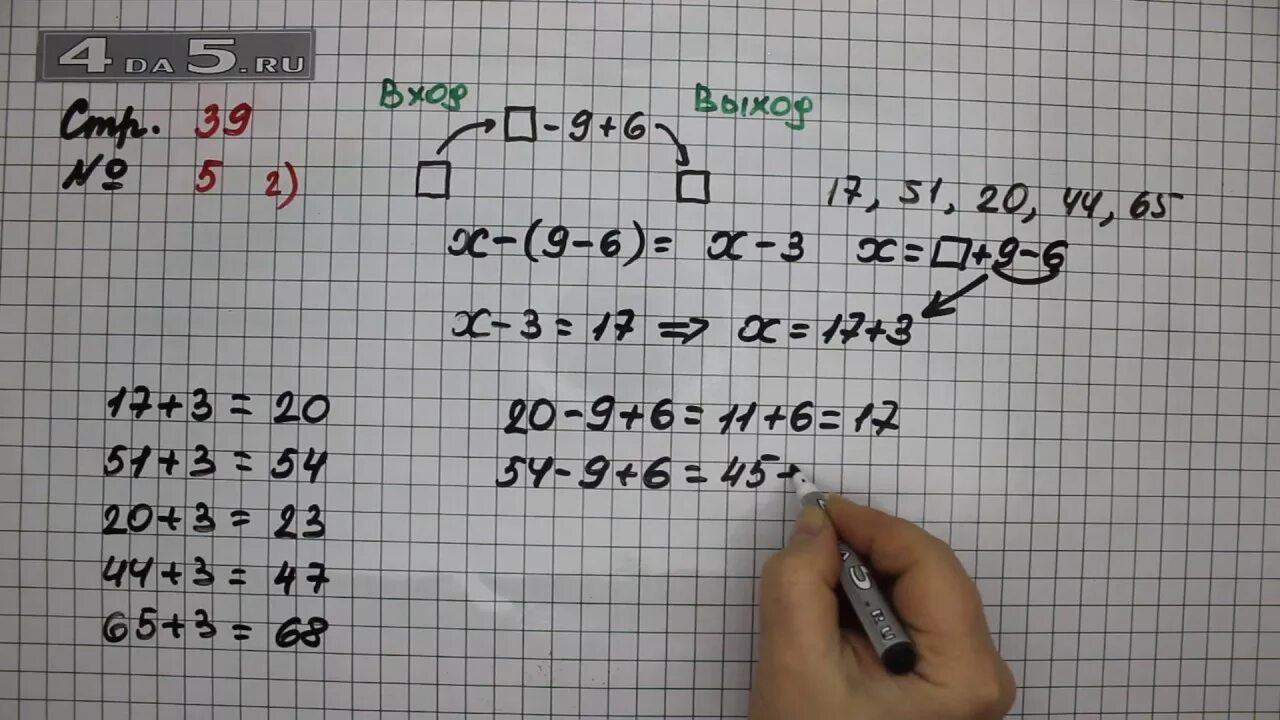 4 DA 5.RU
Стр. 39
№ 5 2)
Вход
Выход
□ - 9 + 6
□ □
17, 51, 20, 44, 65
x - (9 - 6) = x - 3 x = □ + 9 - 6
x - 3 = 17 ⇒ x = 17 + 3
17 + 3 = 20
51 + 3 = 54
20 + 3 = 23
44 + 3 = 47
65 + 3 = 68
20 - 9 + 6 = 11 + 6 = 17
54 - 9 + 6 = 45 +
5.RU